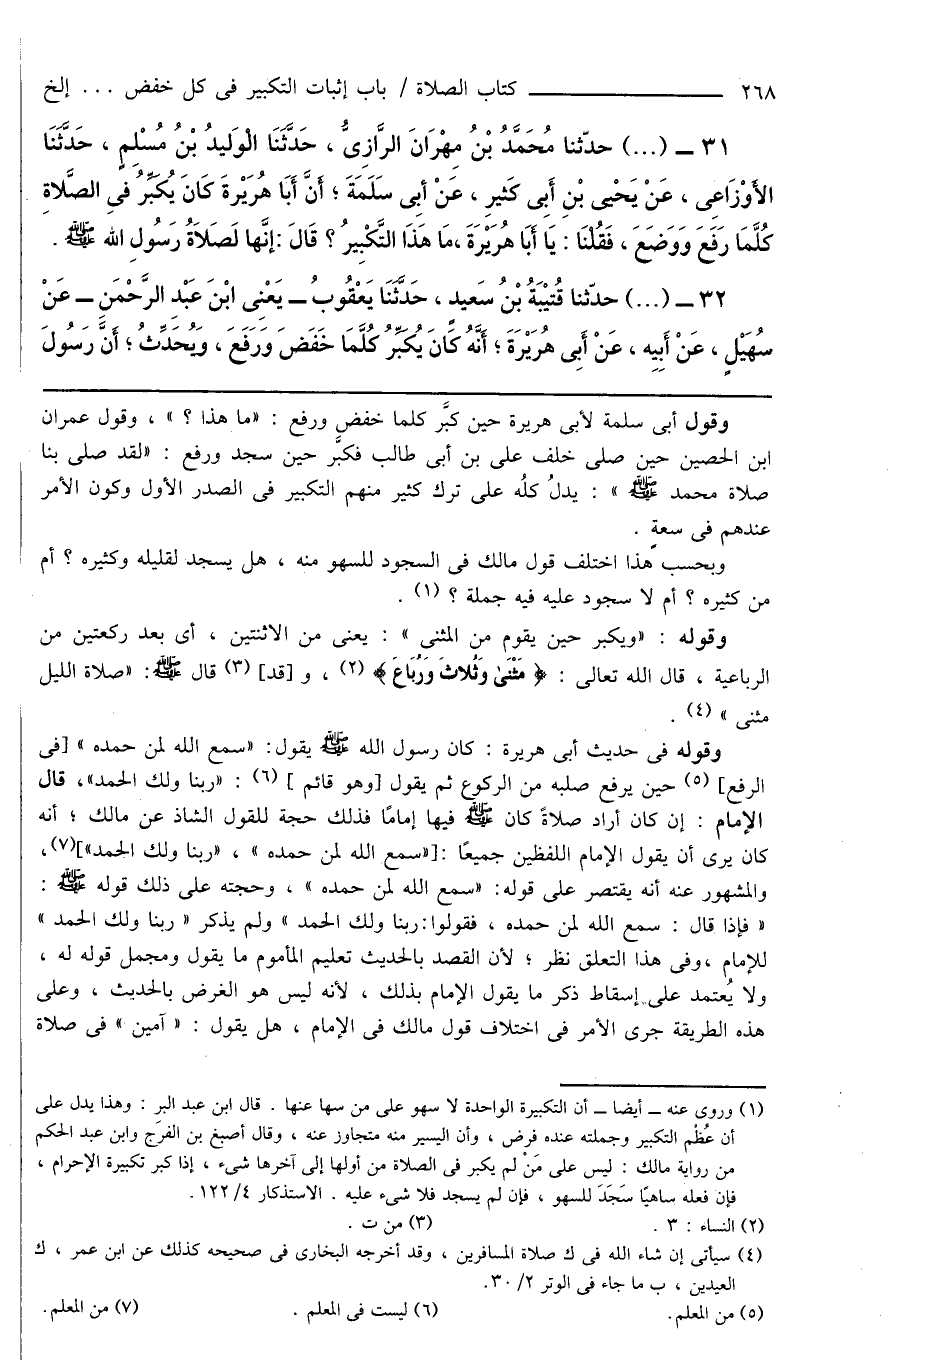 ٢٦٨ ــــــــــــــــ كتاب الصلاة / باب إثبات التكبير فى كل خفض ... إلخ
٣١ ــ (...) حدّثنا مُحَمَّدُ بْنُ مِهْرَانَ الرَّازِىُّ ، حَدَّثَنَا الْوَلِيدُ بْنُ مُسْلِمٍ ، حَدَّثَنَا
الأَوْزَاعِى ، عَنْ يَحْيى بْنِ أَبِى كَثِيرٍ ، عَنْ أَبِى سَلَمَةَ ؛ أَنَّ أَبَا هُرَيْرَةَ كَانَ يُكَبِّرُ فِى الصَّلاةِ
كُلَّمَا رَفَعَ وَوَضَعَ ، فَقُلْنَا : يَا أَبَا هُرَيْرَةَ ،مَا هَذَا التَّكْبِيرُ ؟ قَالَ :إِنَّها لَصَلاةُ رَسُولِ الله ﷺ .
٣٢ ــ (...) حدّثنا قُتَيْبَةُ بْنُ سَعِيدٍ ، حَدَّثَنَا يَعْقُوبُ ــ يَعْنِى ابْنَ عَبْدِ الرَّحْمَنِ ــ عَنْ
سُهَيْلٍ ، عَنْ أَبِيهِ ، عَنْ أَبِى هُرَيْرَةَ ؛ أَنَّهُ كَانَ يُكَبِّرُ كُلَّمَا خَفَضَ وَرَفَعَ ، وَيُحَدِّثُ ؛ أَنَّ رَسُولَ
وقول أبى سلمة لأبى هريرة حين كبَّر كلما خفض ورفع : «ما هذا ؟ » ، وقول عمران
ابن الحصين حين صلى خلف على بن أبى طالب فكبَّر حين سجد ورفع : «لقد صلى بنا
صلاة محمد ﷺ » : يدلُ كلُه على ترك كثير منهم التكبير فى الصدر الأول وكون الأمر
عندهم فى سعةٍ .
وبحسب هذا اختلف قول مالك فى السجود للسهو منه ، هل يسجد لقليله وكثيره ؟ أم
من كثيره ؟ أم لا سجود عليه فيه جملة ؟ (١) .
وقوله : «ويكبر حين يقوم من المثنى » : يعنى من الاثنتين ، أى بعد ركعتين من
الرباعية ، قال الله تعالى : ﴿ مَثْنَىٰ وَثُلاثَ وَرُبَاعَ ﴾ (٢) ، و [قد] (٣) قال ﷺ: «صلاة الليل
مثنى » (٤) .
وقوله فى حديث أبى هريرة : كان رسول الله ﷺ يقول: «سمع الله لمن حمده » [فى
الرفع] (٥) حين يرفع صلبه من الركوع ثم يقول [وهو قائم ] (٦) : «ربنا ولك الحمد»، قال
الإمام : إن كان أراد صلاةً كان ﷺ فيها إمامًا فذلك حجة للقول الشاذ عن مالك ؛ أنه
كان يرى أن يقول الإمام اللفظين جميعًا :[«سمع الله لمن حمده » ، «ربنا ولك الحمد»](٧)،
والمشهور عنه أنه يقتصر على قوله: «سمع الله لمن حمده » ، وحجته على ذلك قوله ﷺ :
« فإذا قال : سمع الله لمن حمده ، فقولوا:ربنا ولك الحمد » ولم يذكر « ربنا ولك الحمد »
للإمام ،وفى هذا التعلق نظر ؛ لأن القصد بالحديث تعليم المأموم ما يقول ومجمل قوله له ،
ولا يُعتمد على إسقاط ذكر ما يقول الإمام بذلك ، لأنه ليس هو الغرض بالحديث ، وعلى
هذه الطريقة جرى الأمر فى اختلاف قول مالك فى الإمام ، هل يقول : « آمين » فى صلاة
(١) وروى عنه ــ أيضا ــ أن التكبيرة الواحدة لا سهو على من سها عنها . قال ابن عبد البر : وهذا يدل على
أن عُظْم التكبير وجملته عنده فرض ، وأن اليسير منه متجاوز عنه ، وقال أصبغ بن الفرَج وابن عبد الحكم
من رواية مالك : ليس على مَنْ لم يكبر فى الصلاة من أولها إلى آخرها شىء ، إذا كبر تكبيرة الإحرام ،
فإن فعله ساهيًا سَجَدَ للسهو ، فإن لم يسجد فلا شىء عليه . الاستذكار ٤/ ١٢٢ .
(٢) النساء : ٣ . (٣) من ت .
(٤) سيأتى إن شاء الله فى ك صلاة المسافرين ، وقد أخرجه البخارى فى صحيحه كذلك عن ابن عمر ، ك
العيدين ، ب ما جاء فى الوتر ٢/ ٣٠.
(٥) من المعلم. (٦) ليست فى المعلم . (٧) من المعلم.